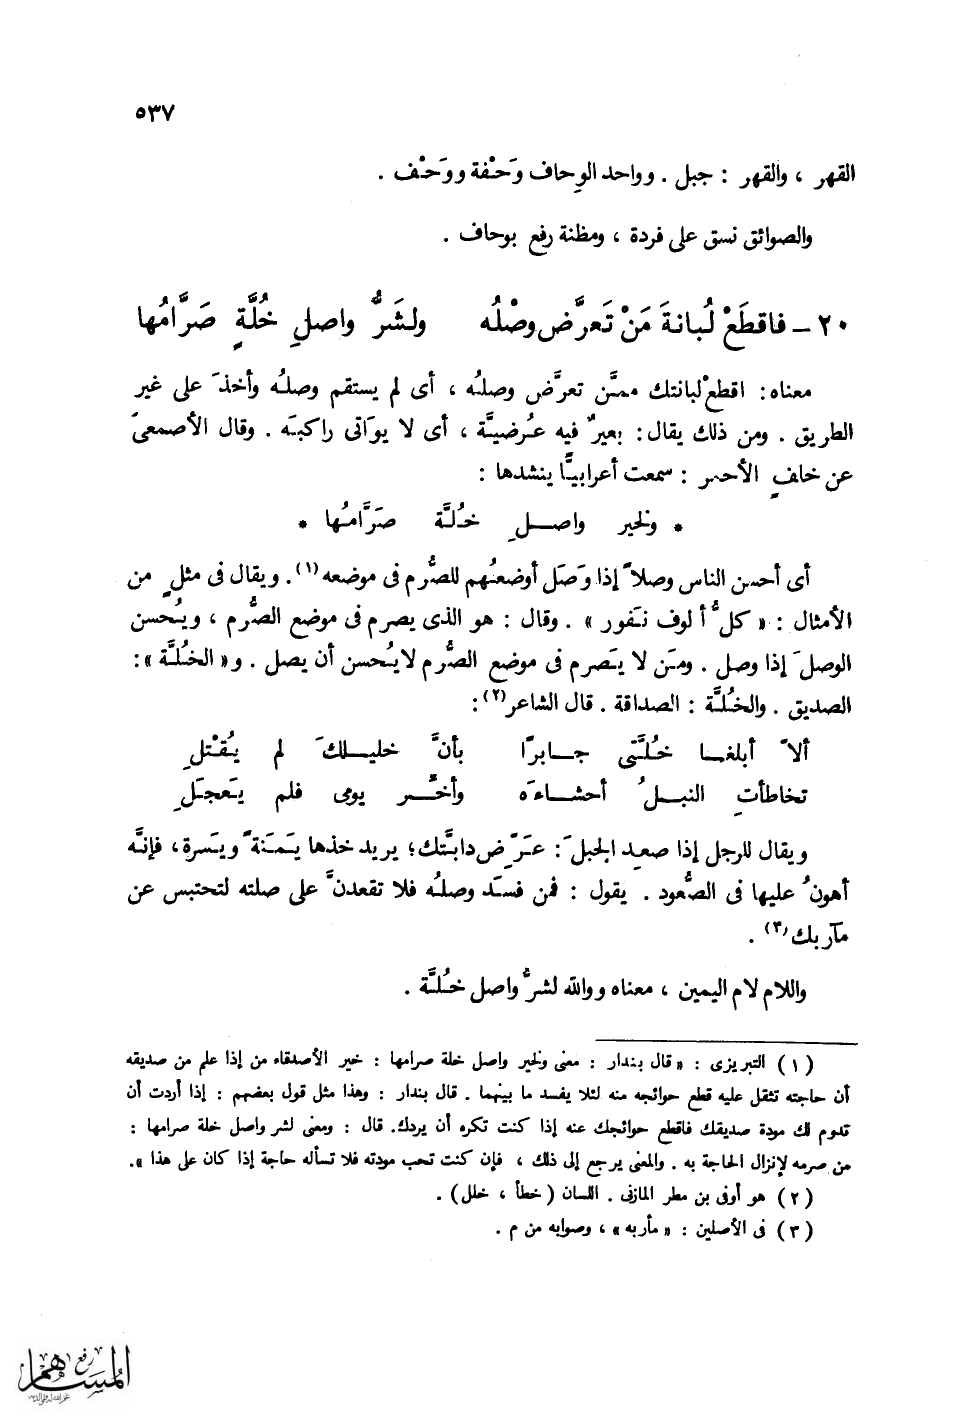 ٥٣٧
القهر ، والقهر : جبل . وواحد الوِحاف وَحْفة ووَحْف .
والصوائق نسق على فردة ، ومظنة رفع بوحاف .
٢٠ – فاقطَعْ لُبانةَ مَنْ تَعرَّض وصْلُه ولشَرُّ واصلِ خُلَّةٍ صَرَّامُها
معناه : اقطعْ لبانتك ممَّن تعرَّض وصلُه ، أى لم يستقم وصلُه وأخذَ على غير
الطريق . ومن ذلك يقال : بعيرٌ فيه عُرضيَّة ، أى لا يوَاتى راكبَه . وقال الأصمعىّ
عن خلفٍ الأحمر : سمعت أعرابيًّا ينشدها :
* ولخير واصلِ خُلَّة صَرَّامُها *
أى أحسن الناس وصلاً إذا وَصَل أوضعُهم للصُّرم فى موضعه(١). ويقال فى مثلٍ من
الأمثال : « كلُّ ألوف نَفور » . وقال : هو الذى يصرم فى موضع الصُّرم ، ويُحسن
الوصلَ إذا وصل . ومَن لا يَصرم فى موضع الصُّرم لا يُحسن أن يصل . و« الخُلَّة » :
الصديق . والخُلَّة : الصداقة . قال الشاعر(٢) :
ألاَ أبلغا خُلَّتى جابرًا بأنَّ خليلكَ لم يُقْتلِ
تخاطأتِ النبلُ أحشاءَه وأخَّر يومى فلم يَعجَلِ
ويقال للرجل إذا صعِد الجبلَ : عَرِّض دابَّتك؛ يريد خذها يَمَنَةً ويَسرة، فإنَّه
أهونُ عليها فى الصُّعود . يقول : فمن فسَد وصلُه فلا تقعدنَّ على صلته لتحتبس عن
مآربك(٣) .
واللام لام اليمين ، معناه ووالله لشرُّ واصل خُلَّة .
(١) التبريزى : « قال بندار : معنى ولخير واصل خلة صرامها : خير الأصدقاء من إذا علم من صديقه
أن حاجته تثقل عليه قطع حوائجه منه لئلا يفسد ما بينهما . قال بندار : وهذا مثل قول بعضهم : إذا أردت أن
تدوم لك مودة صديقك فاقطع حوائجك عنه إذا كنت تكره أن يردك. قال : ومعنى لشر واصل خلة صرامها :
من صرمه لإنزال الحاجة به . والمعنى يرجع إلى ذلك ، فإن كنت تحب مودته فلا تسأله حاجة إذا كان على هذا ».
(٢) هو أوفى بن مطر المازنى . اللسان (خطأ ، خلل) .
(٣) فى الأصلين : « مأربه » ، وصوابه من م .